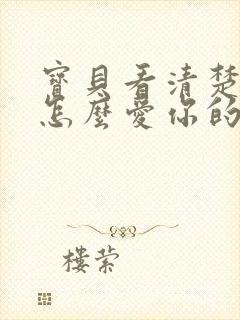 寶貝看清楚
怎麼愛你的
樓萦